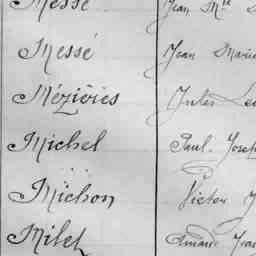 Messé Jean M
Messé Jean Marie
Mézières Jules
Michel Paul. Josep
Michon Victor J
Milet Amand Jean